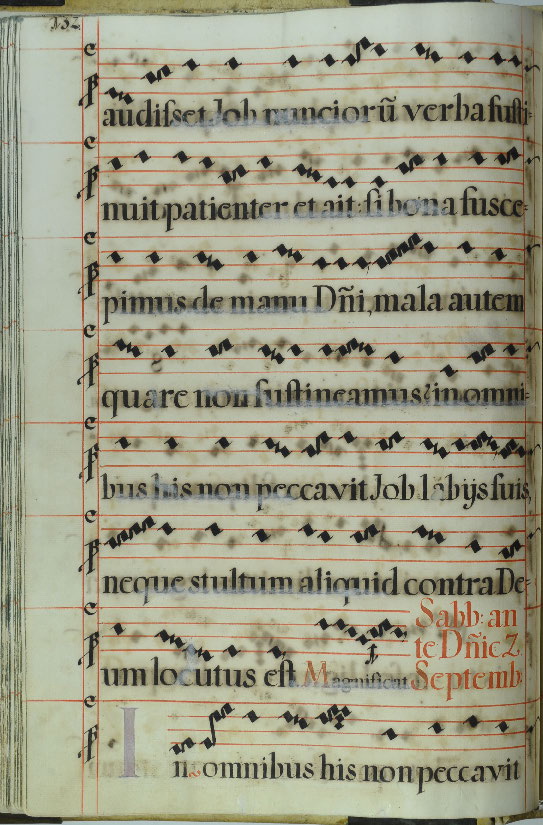 132
audisset Job nunciorū verba susti-
nuit patienter et ait: si bona susce-
pimus de manu Dñi, mala autem
quare non sustineamus? in omni-
bus his non peccavit Job labijs suis,
neque stultum aliquid contra De-
um locutus est Magnificat
Sabb: an
te Dñic 2.
Septemb:
In omnibus his non peccavit